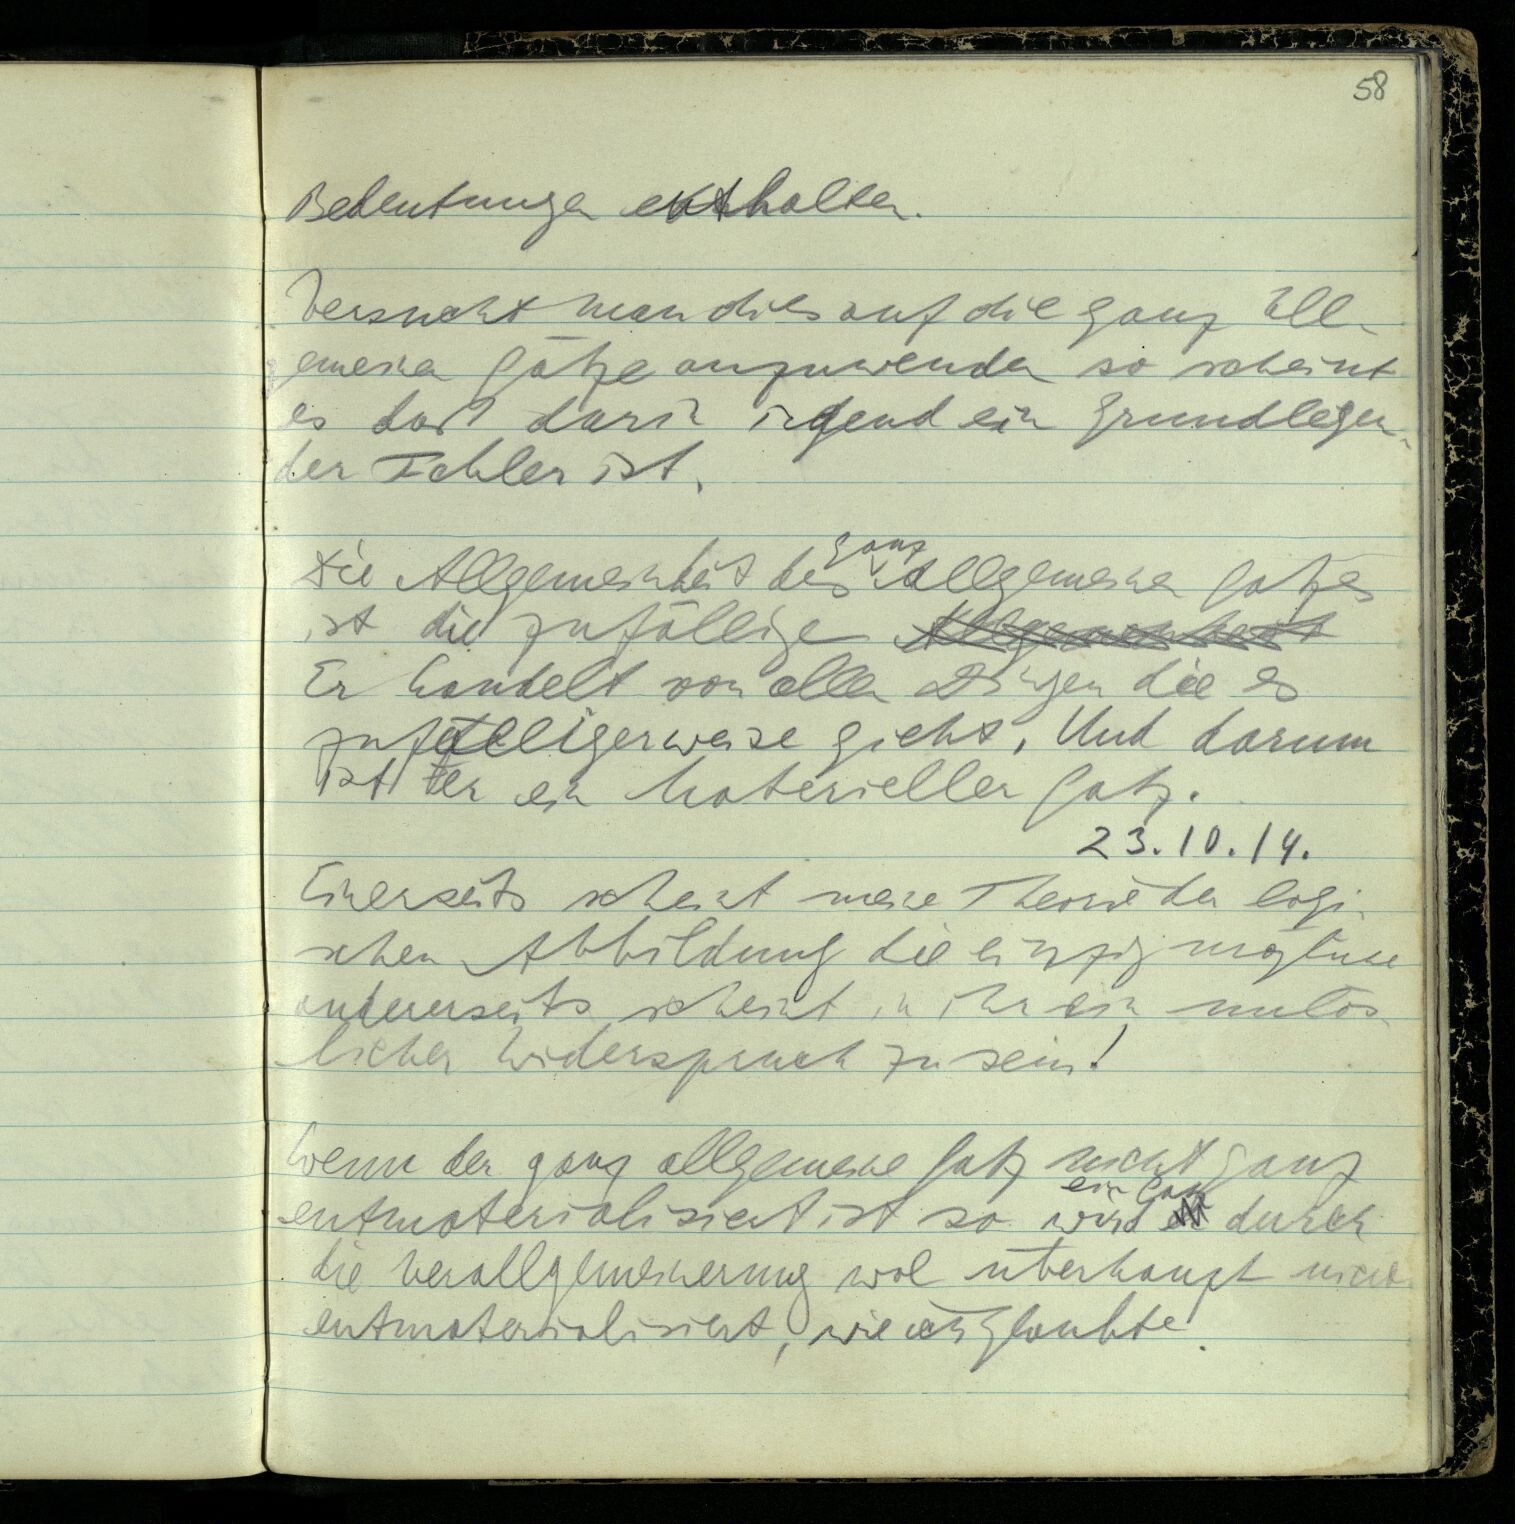 58
Bedeutungen enthalten.
Versucht man dies auf die ganz All-
gemeinen Sätze anzuwenden so scheint
es daß darin irgend ein grundlegen-
der Fehler ist.
ganz
Die Allgemeinheit des allgemeinen Satzes
ist die zufällige Allgemeinheit
Er handelt von allen Dingen die es
zufälligerweise giebt. Und darum
ist er ein materieller Satz.
23.10.14.
Einerseits scheint meine Theorie der logi-
schen Abbildung die einzig mögliche
andererseits scheint in ihr ein unlös-
licher Widerspruch zu sein!
Wenn der ganz allgemeine Satz nicht ganz
ein Satz
entmaterialisiert ist so wird durch
die Verallgemeinerung wol überhaupt nicht
entmaterialisiert, wie ich glaubte.